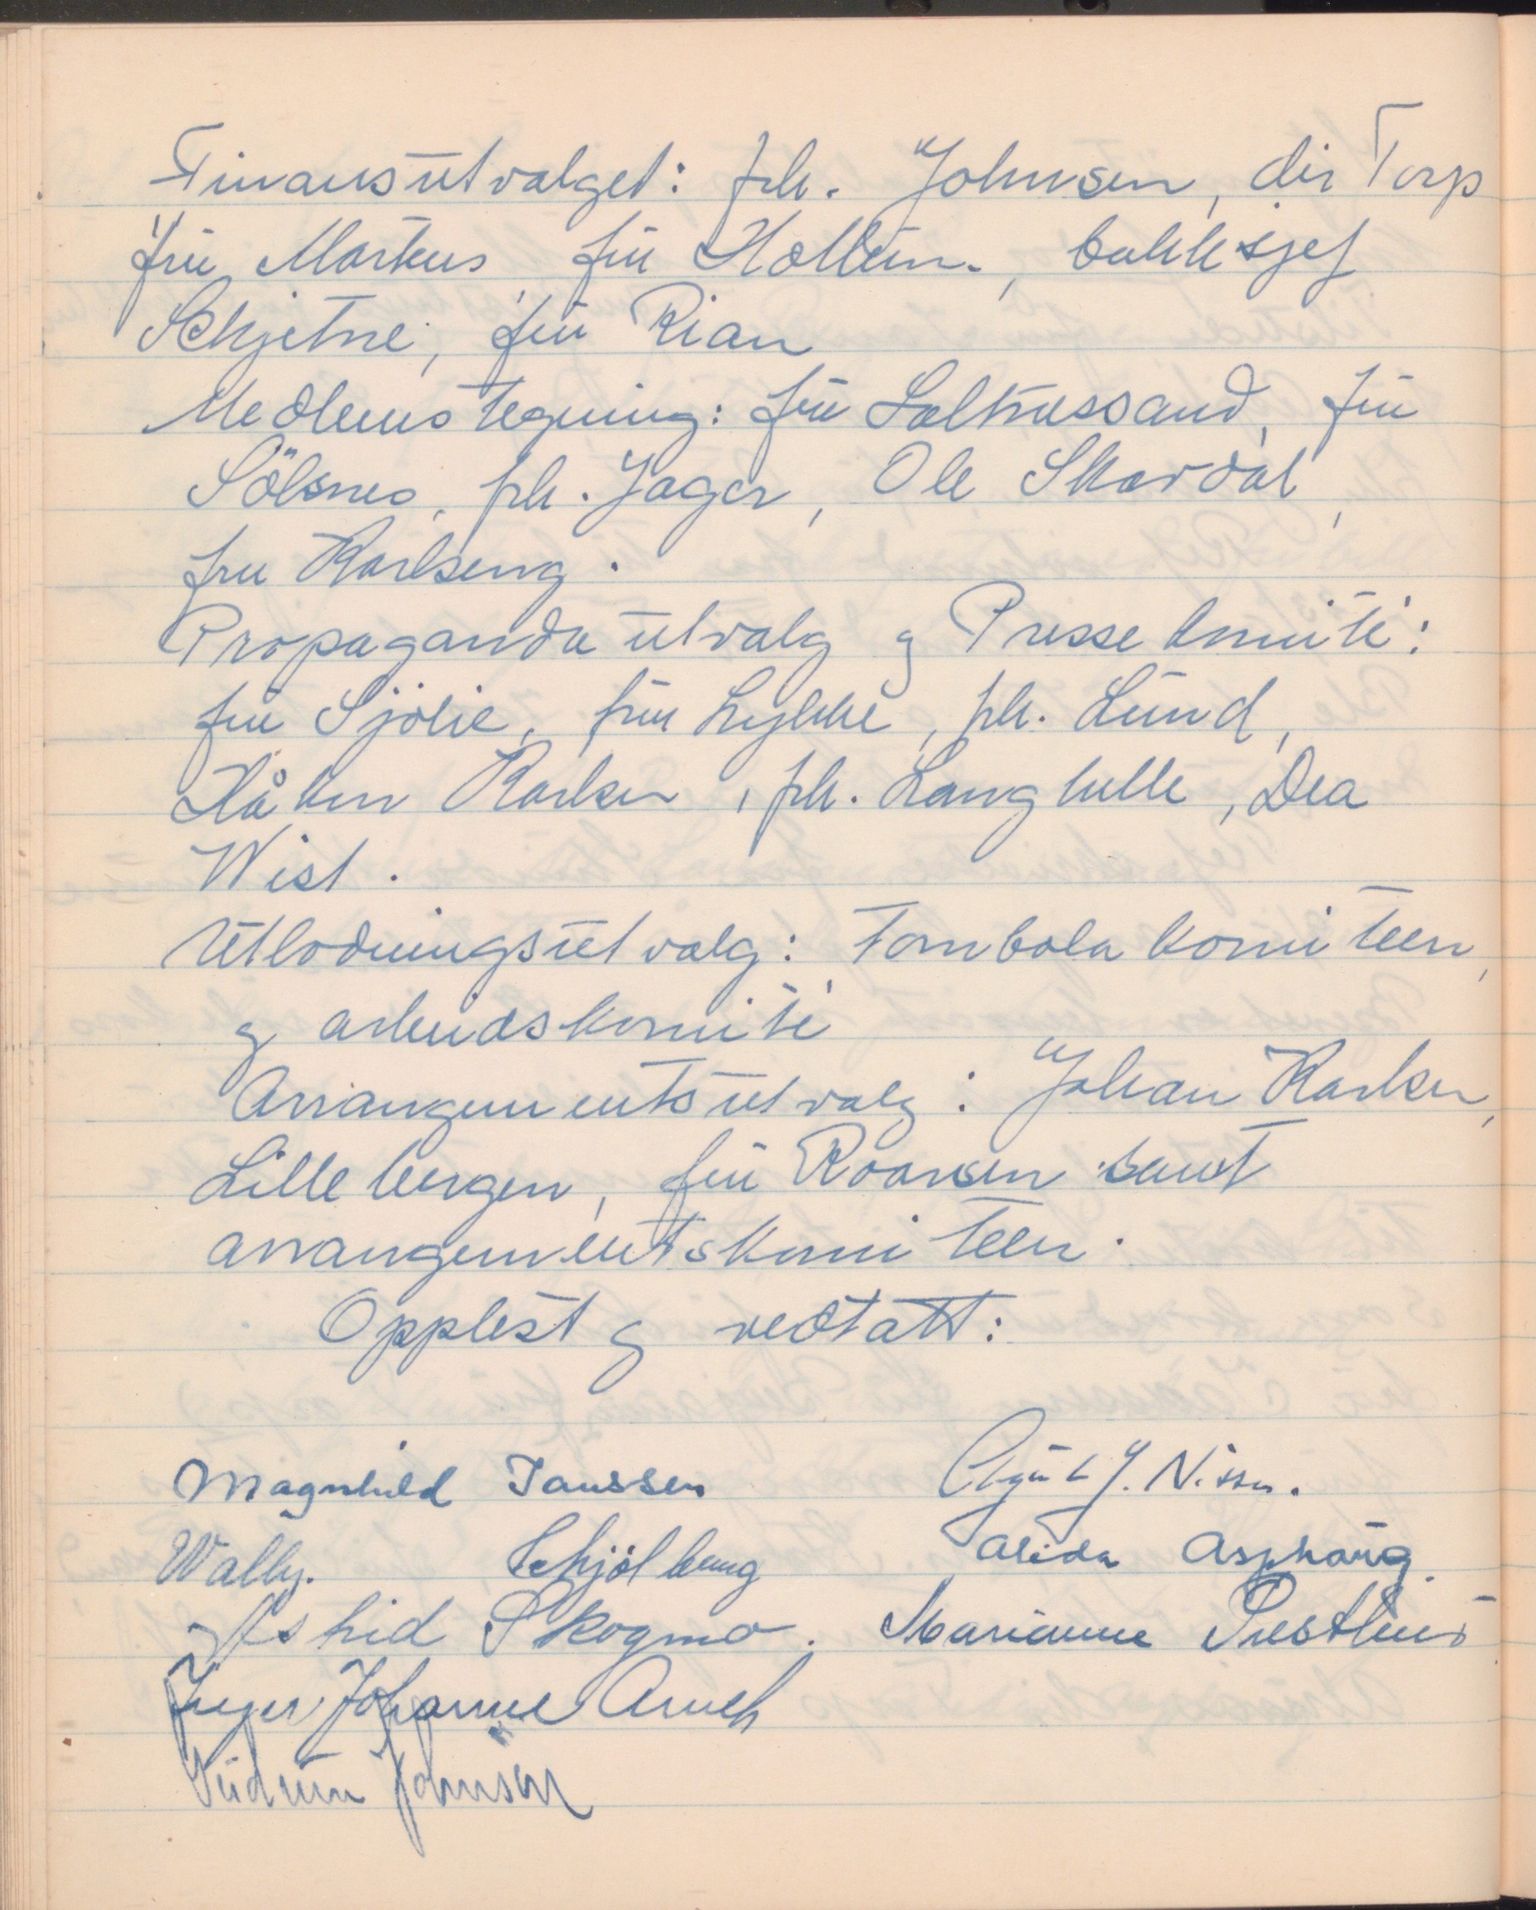 Finansutvalget: frk. Johnsen, dir Torp
fru Markus, fru Hollum, bankksjef
Schjetne, fru Rian
Medlemstegning: fru Saltnessand, fru
Sölsnes, frk. Jager, Ole Skardal,
fru Karlseng.
Propaganda utvalg og Presse komite:
fru Sjölie, fru Lykke, frk. Lund,
Håkon Karlsen, frk. Langhelle, Dea
Wist.
Utlodningsutvalg: Tombola komiteen,
og arbeidskomite
Arrangementsutvalg: Johan Karlsen,
Lillebergen, fru Roarsen samt
arrangementskomiteen.
Opplest og vedtatt:
Magnhild Janssen J. Nissen.
Wally. Schjölberg Alida Asphaug.
Astrid Skogmo. Marianne Presthus
Inger Johanne Arneh
Gudrun Johnsen